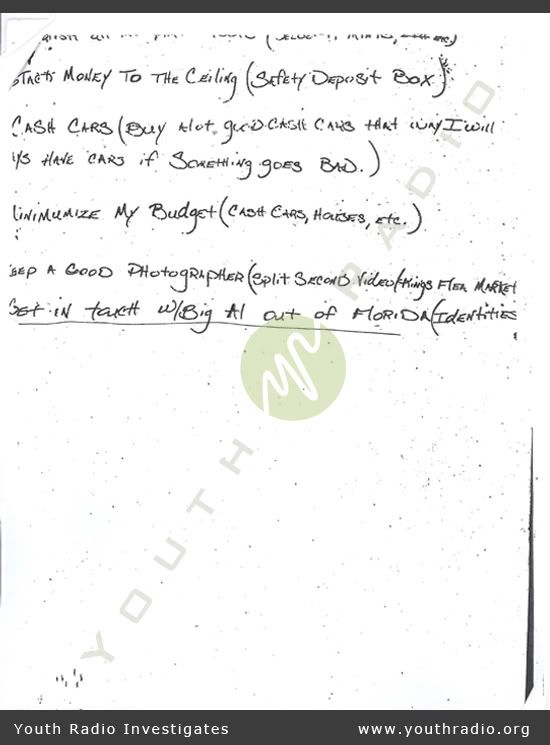 Stack Money To The Ceiling (Safety Deposit Box)
Cash Cars (Buy alot good cash cars that way I will
have cars if Something goes Bad.)
Minimumize My Budget (Cash Cars, Houses, etc.)
Keep A Good Photographer (Split Second Video/Kings Flea Market
Get in touch w/Big Al out of Florida (Identities
YOUTH RADIO
Youth Radio Investigates
www.youthradio.org